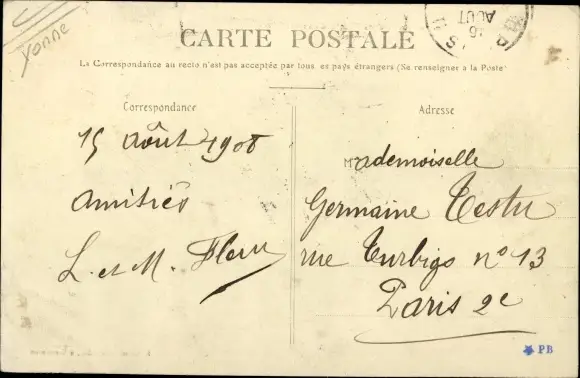 Yonne
CARTE POSTALE
La Correspondance au recto n'est pas acceptée par tous es pays étrangers (Se renseigner à la Poste
Correspondance
Adresse
15 Août 1908
Amitiés
L. et M. Fleru
Mademoiselle
Germaine Testu
rue Turbigo n° 13
Paris 2e
AOUT
PB